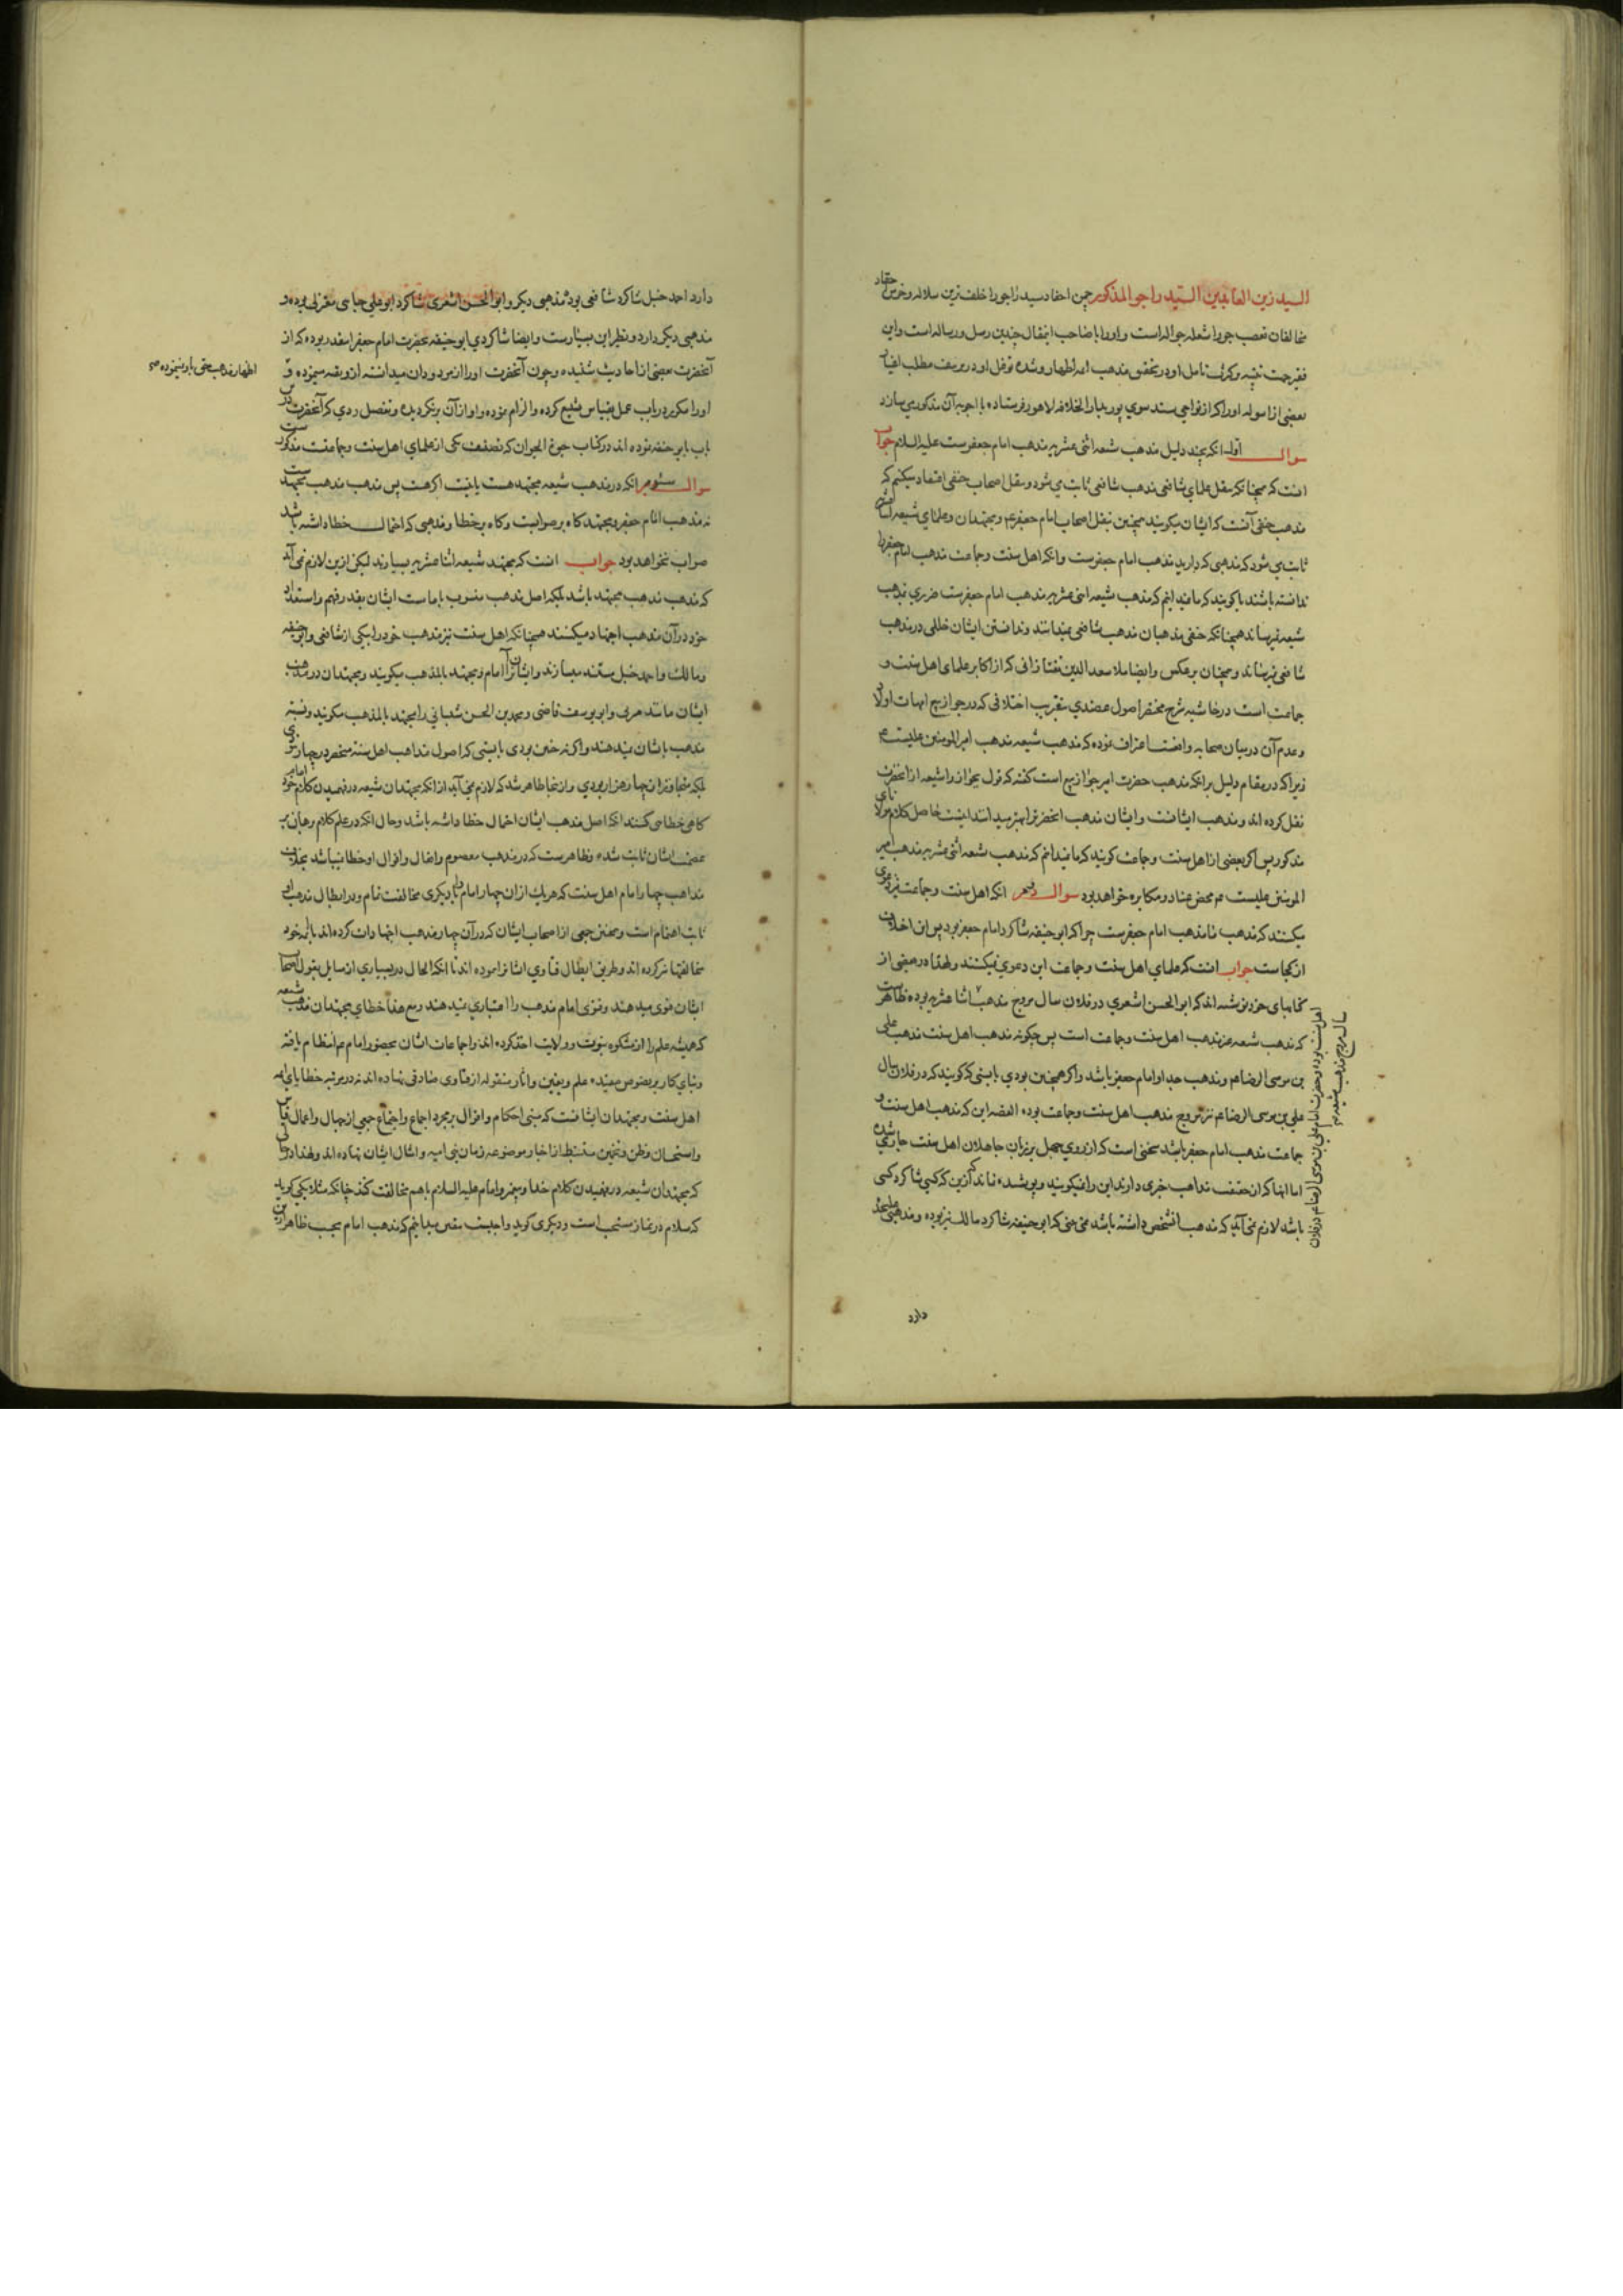 السید زین العابدین السید راجو المذکور چون احفاد سید راجو را خلف ترین سلاله و خرمن حقاد
مخالفان تعصب جو را شعله جواله است و او را با صاحب انتقال چندین رسل و رساله است و این
فقیر جهت تنبیه و کثرت تامل او در تحقیق مذهب ائمه اطهار و شده توغل او در تعریف مطلب اغیار
بعضی از اسوله او را که از نواحی سند سوی پور بدار الخلافه لاهور فرستاده با اجوبه آن مذکور می سازد
سوال اول انکه بچند دلیل مذهب شیعه اثنی عشریه مذهب امام جعفرست علیه السلام جواب
انست که همچنانکه بنقل علمای شافعی مذهب شافعی ثابت می شود و بنقل اصحاب حنفی اعتقاد میکنیم که
مذهب حنفی آنست که ایشان میکویند همچنین بنقل اصحاب امام جعفر عم و مجتهدان و علمای شیعه
ثابت می شود که مذهبی که دارند مذهب امام جعفرست و انکه اهل سنت و جماعت مذهب امام جعفر را
ندانسته باشند یا کویند که ما نمیدانیم که مذهب شیعه اثنی عشریه مذهب امام جعفرست ضرری بمذهب
شیعه نمیرساند همچنانکه حنفی مذهبان مذهب شافعی نمیدانند و ندانستن ایشان خللی در مذهب
شافعی نمیرساند و همچنان بر عکس و ایضا ملا سعد الدین تفتازانی که از اکابر علمای اهل سنت و
جماعت است در حاشیه شرح مختصر اصول عضدی بتقریب اختلافی که در جواز بیع امهات اولاد
و عدم آن در میان صحابه واقعست اعتراف نموده که مذهب شیعه مذهب امیر المومنین علیست عم
زیرا که در مقام دلیل بر انکه مذهب حضرت امیر جواز بیع است گفته که قول بجواز را شیعه از انحضرت
نقل کرده اند و مذهب ایشانست و ایشان مذهب انحضرت را بهتر میدانند اینست حاصل کلام مولانای
مذکور پس اگر بعضی از اهل سنت و جماعت کویند که ما نمیدانیم که مذهب شیعه اثنی عشریه مذهب امیر
المومنین علیست عم محض عناد و مکابره خواهد بود سوال دویم انکه اهل سنت و جماعت نیز دعوی
میکنند که مذهب ما مذهب امام جعفرست چرا که ابو حنیفه شاکرد امام جعفر بود پس این اختلاف
از کجاست جواب انست که علمای اهل سنت و جماعت این دعوی نمیکنند و لهذا در بعضی از
کتابهای خود نوشته اند که ابو الحسن اشعری در فلان سال مروج مذهب اهل سنت بوده و حضرت امام علی بن موسی الرضا عم در فلان
سال مروج مذهب شیعه
اثنا عشریه بوده ظاهرست
که مذهب شیعه غیر مذهب اهل سنت و جماعت است پس چکونه مذهب اهل سنت مذهب علی
بن موسی الرضا عم و مذهب جد او امام جعفر باشد و اگر همچنین بودی بایستی که کویند که در فلان سال
علی بن موسی الرضا عم نیز مروج مذهب اهل سنت و جماعت بوده القصه این که مذهب اهل سنت و
جماعت مذهب امام جعفر باشد سخنی است که از روی جهل بر زبان جاهلان اهل سنت جاری شده
اما انها که از حقیقت مذاهب خبری دارند این را نمیکویند و پوشیده نماند که ازین که کسی شاکرد کسی
باشد لازم نمی آید که مذهب انشخص داشته باشد نمی بینی که ابو حنیفه شاکرد مالک نیز بوده و مذهبی علیحده
دارد
دارد احمد حنبل شاکرد شافعی بود مذهبی دیکر و ابو الحسن اشعری شاکرد ابو علی جبایی معتزلی بوده و
مذهبی دیکر دارد و نظیر این بسیارست و ایضا شاکردی ابو حنیفه بحضرت امام جعفر اینقدر بوده که از
آنحضرت بعضی از احادیث شنیده و چون آنحضرت او را از مردودان میدانسته از و تقیه مینموده و
اظهار مذهب حق باو نمینموده
او را مکرر در باب عمل بقیاس تشنیع کرده و الزام نموده و او از آن بر نکردیده و تفصیل ردی که آنحضرت در
باب بابو حنیفه نموده اند در کتاب حیوة الحیوان که تصنیف یکی از علمای اهل سنت و جماعتست مذکورست
سوال سیوم انکه در مذهب شیعه مجتهد هست یا نیست اگر هست پس مذهب مذهب مجتهدست
نه مذهب امام جعفر و مجتهد کاه بر صوابست و کاه بر خطا و مذهبی که احتمال خطا داشته باشد
صواب نخواهد بود جواب انست که مجتهد شیعه اثنا عشریه بسیارند لیکن ازین لازم نمی آید
که مذهب مذهب مجتهد باشد بلکه اصل مذهب منسوب بامامست ایشان بقدر فهم و استعداد
خود در آن مذهب اجتهاد میکنند همچنانکه اهل سنت نیز مذهب خود را بیکی از شافعی و ابو حنیفه
و مالک و احمد حنبل مستند میسازند و ایشان را امام و مجتهد بالمذهب میکویند و مجتهدان در مذهب
ایشان مانند مزنی و ابو یوسف قاضی و محمد بن الحسن شیبانی را مجتهد بالمذهب میکویند و نسبت
مذهب بایشان نمیدهند و اگر نه چنین بودی بایستی که اصول مذاهب اهل سنه منحصر در چهار نبودی
بلکه متجاوز از چهار هزار بودی و از اینجا ظاهر شد که لازم نمی آید از انکه مجتهدان شیعه در فهمیدن کلام امام خود
کاهی خطا می کنند انکه اصل مذهب ایشان احتمال خطا داشته باشد و حال انکه در علم کلام برهان بر
عصمت ایشان ثابت شده و ظاهرست که در مذهب معصوم و افعال و اقوال او خطا نمیباشد بخلاف
مذاهب چهار امام اهل سنت که هر یک از ان چهار امام را با دیکری مخالفت تمام و در ابطال مذهب او
ثابت اهتمام است و همچنین جمعی از اصحاب ایشان که در آن چهار مذهب اجتهادات کرده اند با ائمه خود
مخالفتها نیز کرده اند و طریق ابطال فتاوی ایشان را پیموده اند تا انکه الحال در بسیاری از مسایل بقول اصحاب
ایشان فتوی میدهند و فتوی امام مذهب را اعتباری نمیدهند و مع هذا خطای مجتهدان مذهب شیعه
که همیشه علم را از مشکوه نبوت و ولایت اخذ کرده اند و اجماعات ایشان بحضور امام عم انتظام یافته
و بنای کار بر نصوص مفیده علم و یقین و اثار منقوله از فتاوی صادقی نهاده اند نه در مرتبه خطایای ائمه
اهل سنت و مجتهدان ایشانست که مبنی احکام و اقوال بر مجرد اجماع و اجتماع جمعی از جهال و اعمال قیاس
و استحسان و ظن و تخمین مستنبط از اخبار موضوعه زمان بنی امیه و امثال ایشان نهاده اند و لهذا در جائی
که مجتهدان شیعه در فهمیدن کلام خدا و پیغمبر و امام علیه السلام باهم مخالفت کنند چنانکه مثلا یکی کوید
که سلام در نماز مستحب است و دیکری کوید واجبست یقین میدانیم که مذهب امام بحسب ظاهر ازین